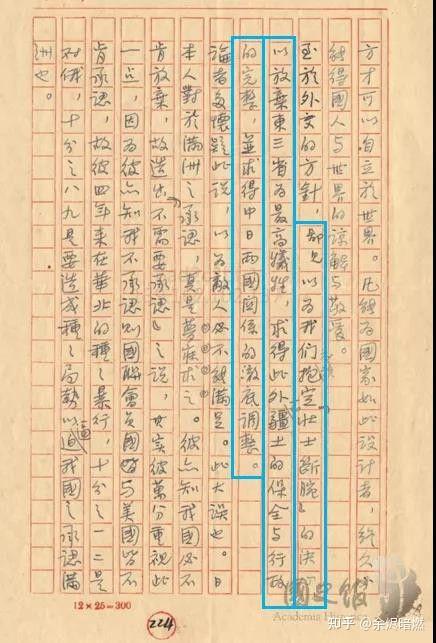 方才可以自立於世界。凡能為國家如此設計者,終久必
能得國人與世界的諒解與敬愛。
至於外交的方針,鄙見以為我們抱定「壯士斷腕」的決
以放棄東三省為最高犧牲,求得此外疆土的保全與行政
的完整,並求得中日兩國關係的澈底調整。
論者多懷疑此說,以為敵人必不能滿足。此大誤也。日
本人對於滿洲之承認,真是夢寐求之。彼亦知我國必不
肯放棄,故造出「不需要承認」之說,其實彼萬分重視此
一点,因為彼亦知我不承認則國聯會員國皆與美國皆不
肯承認,故彼四年來在華北的種々暴行,十分之一二是
對俄,十分之八九是要造成種々局勢以逼迫我國之承認滿
洲也。
12×25=300
224
國史館
Academia Historica
知乎 @余沢暗燃